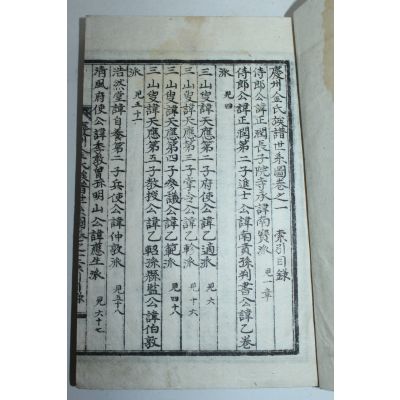 慶州金氏族譜世系圖卷之一 索引目錄
侍郎公諱正潤長子院寺丞諱南賢派 見一章
侍郎公諱正潤第二子進士公諱南賁孫判書公諱乙卷
派 見四
三山叟諱天應第二子府使公諱乙適派 見六
三山叟諱天應第三子掌令公諱乙軫派 見十六
三山叟諱天應第四子參議公諱乙範派 見四十八
三山叟諱天應第五子教授公諱乙輅派縣監公諱伯敦
派 見五十一
浩然堂諱自養第二子兵使公諱仲敦派 見五十八
清風府使公諱季敦曾孫明山公諱應生派 見六十七